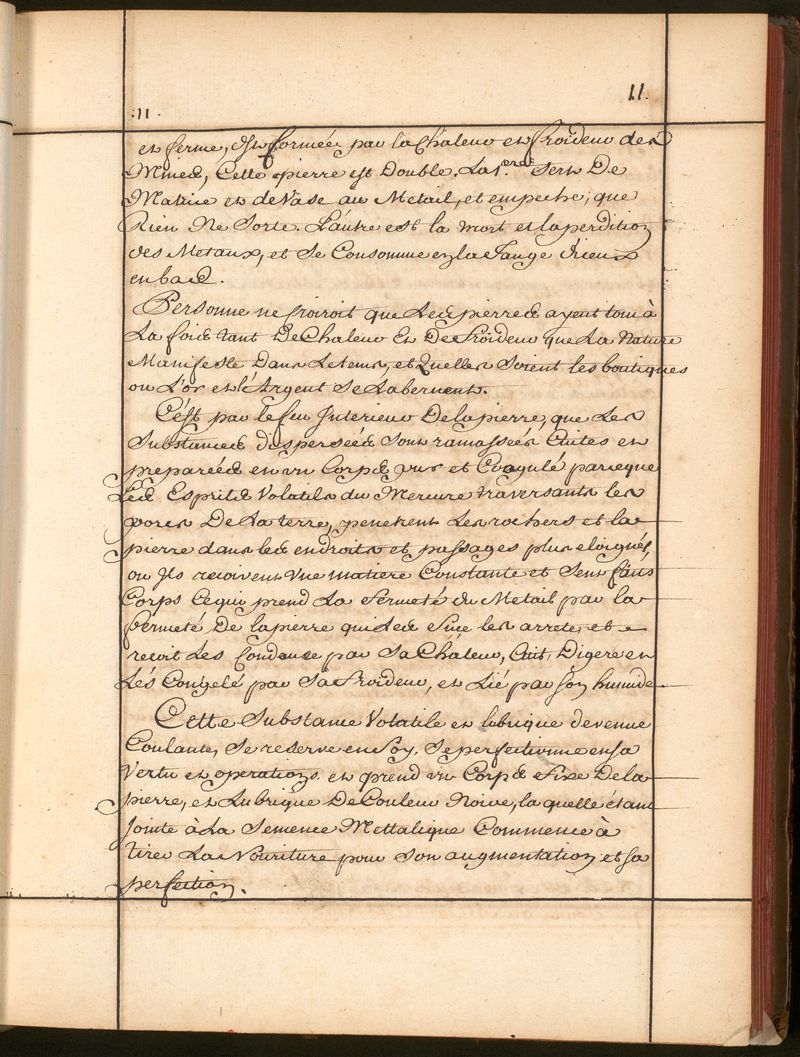 11
:11.
et ferme, est formée par la Chaleur et froideur des
Mines, Cette pierre est Double. La 1.ere Sert De
Matrice et de Vase au Metail, et empeche, que
Rien Ne Sorte. L'autre est la mort et la perdition
des Metaux, et Se Consomme en la fange
en bas.
Personne ne Croiroit que Les pierres ayent tout à
La fois tant De Chaleur Et De froideur que La Nature
Manifeste Dans Letems, et Quelles Soient les boutiques
ou L'or et l'Argent Se Labernent.
C'est par le feu Interieur De la pierre, que Les
Substances dispersées Sont ramassées Cuites et
preparées en vn Corps pur et Coagulé parceque
Les Esprits Volatils du Mercure traversants les
pores De La terre, penetrent Les rochers et la
pierre dans les endroits et passages plus eloignés,
ou Ils recoivent Vne matiere Constante et Sont faits
Corps Cequi prend La Fermeté du Metail par la
fermeté De la pierre qui Les fixe les arrete, et
recoit Les Condense par Sa Chaleur, Cuit, Digere et
Les Congelé par Sa froideur, et Lié par Son humide
Cette Substance Volatile et lubrique devenue
Coulante, Se reserve en Soy, Se perfectionne en sa
Vertu et operations et prend vn Corps Fixe De la
pierre, et Lubrique De Couleur Noire, la quelle étant
Jointe à La Semence Mettalique Commence à
tirer La Nouriture pour Son augmentation et sa
perfection.